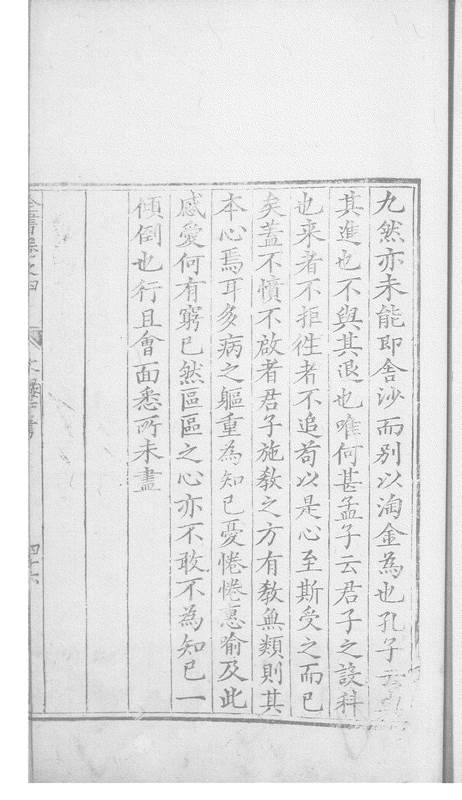 九然亦未能即舍沙而別以淘金為也孔子云與
其進也不與其退也唯何甚孟子云君子之設科
也来者不拒徃者不追苟以是心至斯受之而已
矣蓋不憤不啟者君子施敎之方有敎無類則其
本心焉耳多病之軀重為知已憂惓惓惠喻及此
感愛何有窮已然區區之心亦不敢不為知已一
傾倒也行且會面悉所未盡
全書卷之四
四十六